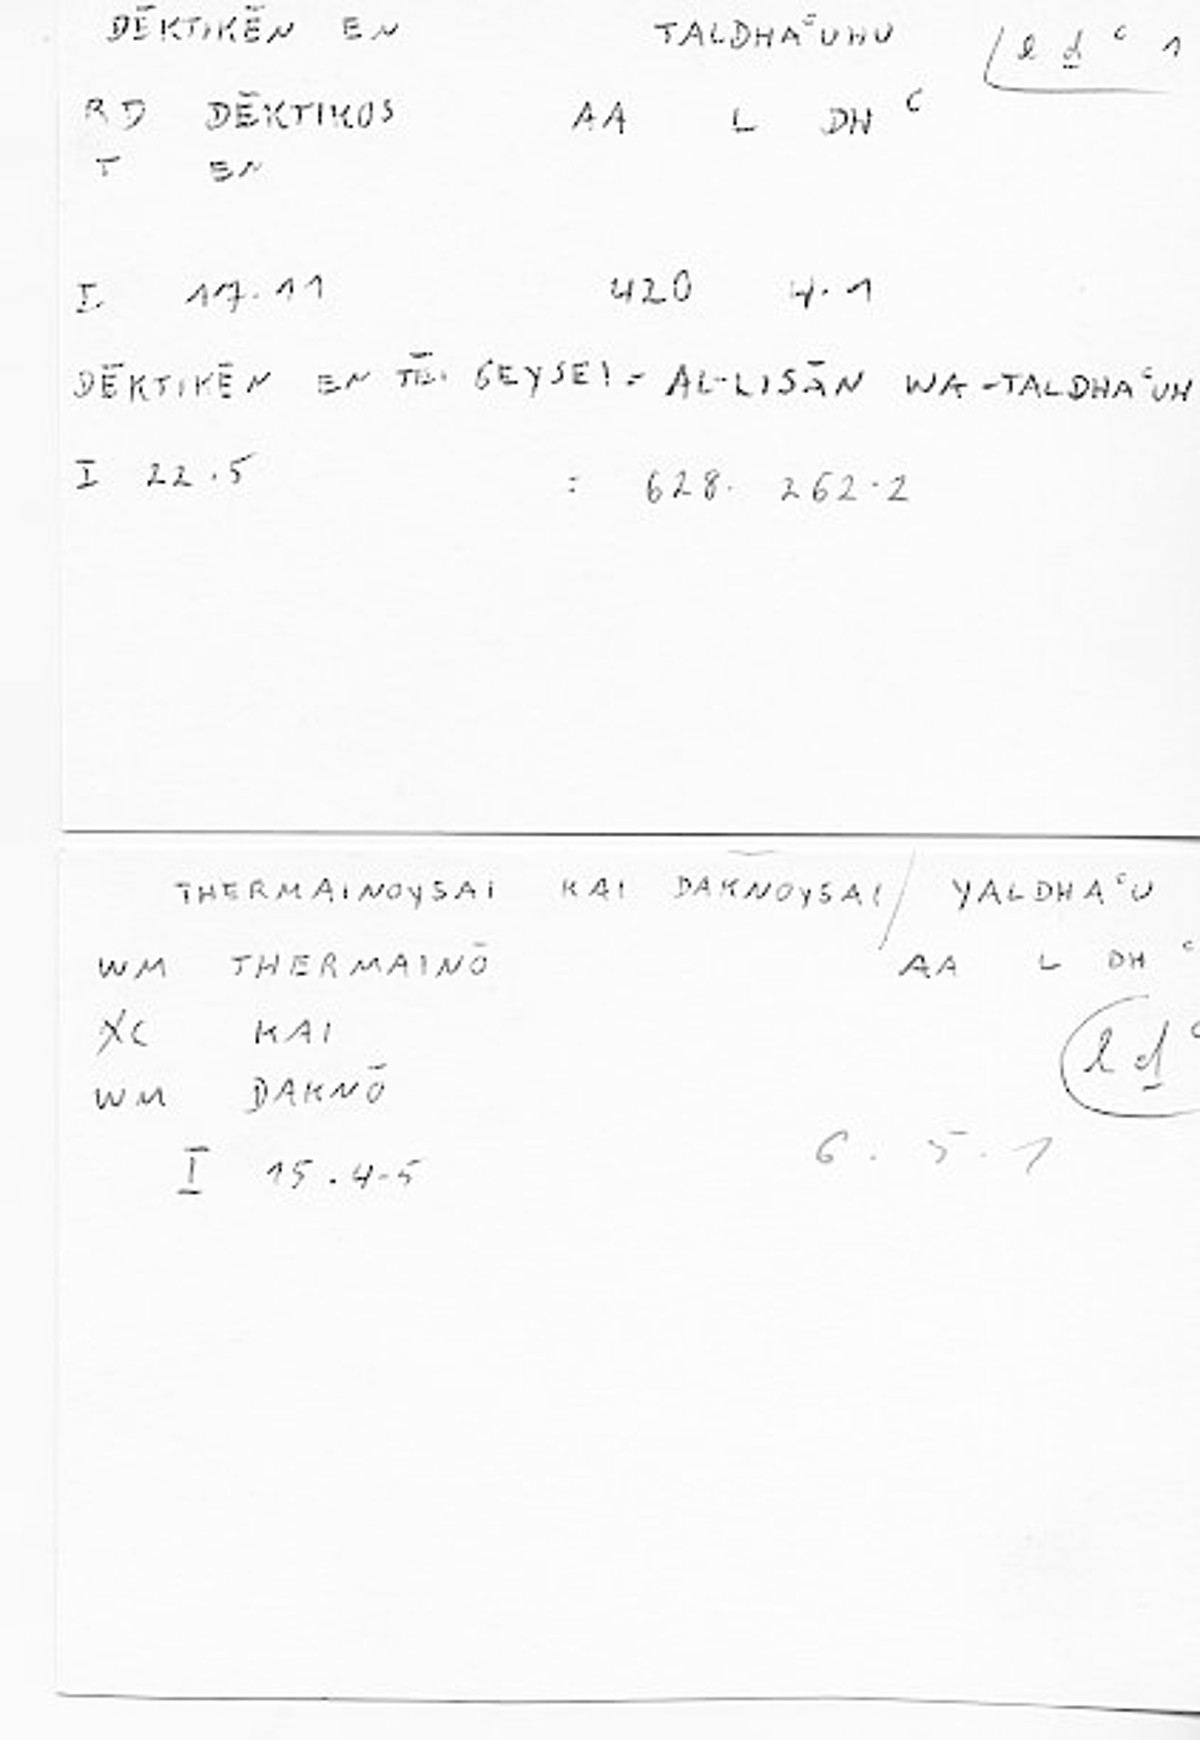 DĒKTIKĒN EN TALDHAʿUHU l ḏ ʿ 1
RD DĒKTIKOS AA L DH ʿ
T EN
I 17.11 420 4.1
DĒKTIKĒN EN TĒI GEYSEI = AL-LISĀN WA-TALDHAʿUH
I 22.5 : 628. 262.2
THERMAINOYSAI KAI DAKNOYSAI / YALDHAʿU
WM THERMAINŌ AA L DH ʿ
XC KAI l ḏ ʿ
WM DAKNŌ
I 15.4-5 6. 5.1